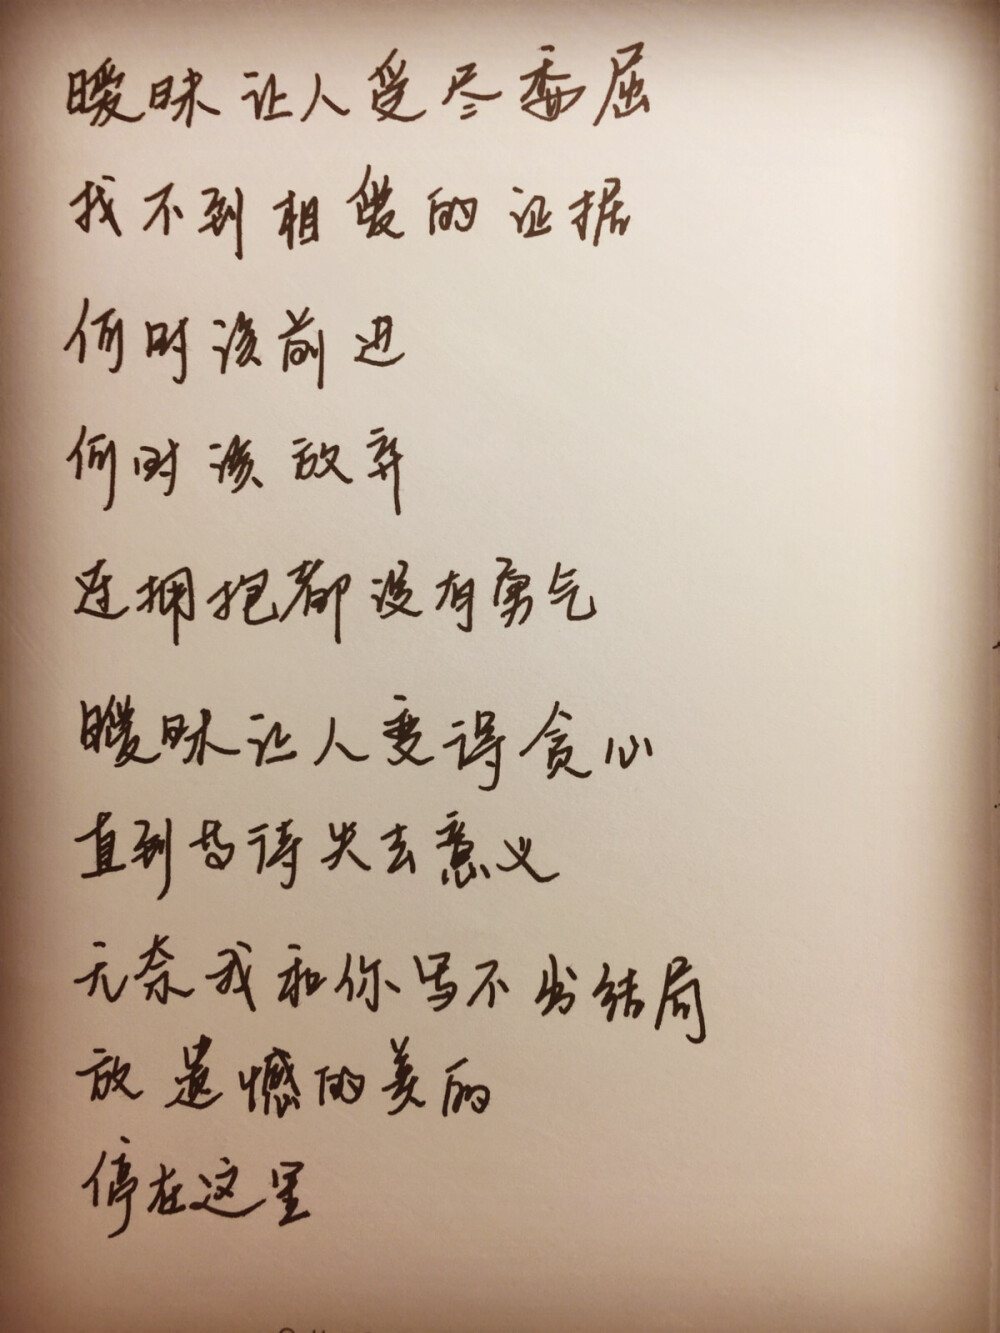 暧昧让人受尽委屈
找不到相爱的证据
何时该前进
何时该放弃
连拥抱都没有勇气
暧昧让人变得贪心
直到等待失去意义
无奈我和你写不出结局
放遗憾的美的
停在这里